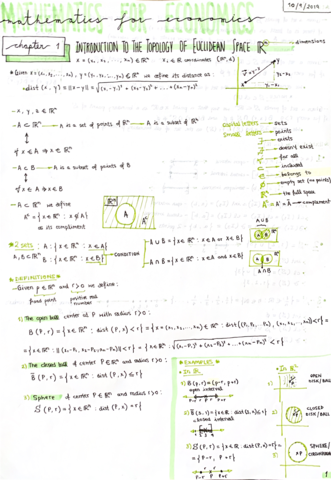 MATHEMATICS FOR ECONOMICS
mathematics for economics
10/9/2019
chapter 1
INTRODUCTION TO THE TOPOLOGY OF EUCLIDEAN SPACE ℝⁿ → dimensions
x = (x₁, x₂, ..., xₙ) ∈ ℝⁿ xᵢ ∈ ℝ coordinates
Given x=(x₁, x₂, ..., xₙ), y=(y₁, y₂, ..., yₙ) ∈ ℝⁿ we define its distance as:
dist (x, y) = ||x-y|| = √(x₁-y₁)² + (x₂-y₂)² + ... + (xₙ-yₙ)²
- x, y, z ∈ ℝⁿ
- A ⊂ ℝⁿ → A is a set of points of ℝⁿ → A is a subset of ℝⁿ
if x ∈ A ⇒ x ∈ ℝⁿ
- A ⊂ B → A is a subset of points of B
if x ∈ A ⇒ x ∈ B
- A ⊂ ℝⁿ we define
Aᶜ = {x ∈ ℝⁿ : x ∉ A}
as its compliment
A
Aᶜ
ℝⁿ
capital letters → sets
small letters → points
∃ → exists
∄ → doesn't exist
∀ → for all
⊂ → included
∈ → belongs to
∅ → empty set (no points)
ℝⁿ → the full space
Aᶜ → complement
2 SETS
A, B ⊂ ℝⁿ
A: {x ∈ ℝⁿ : x ∈ A}
B: {x ∈ ℝⁿ : x ∈ B}
CONDITION
A ∪ B = {x ∈ ℝⁿ : x ∈ A or x ∈ B}
A ∩ B = {x ∈ ℝⁿ : x ∈ A and x ∈ B}
A∪B
A∩B
DEFINITIONS
Given p ∈ ℝⁿ and r>0 we define:
fixed point
positive real number
1) The open ball of center P with radius r>0:
B (P, r) = {x ∈ ℝⁿ : dist (P, x) < r} = {x = (x₁, x₂, ..., xₙ) ∈ ℝⁿ : dist((P₁, P₂, ..., Pₙ), (x₁, x₂, ..., xₙ)) < r} =
= {x ∈ ℝⁿ : ||(x₁-P₁, x₂-P₂, ..., xₙ-Pₙ)|| < r} = {x ∈ ℝⁿ : √(x₁-P₁)² + (x₂-P₂)² + ... + (xₙ-Pₙ)² < r}
2) The closed ball of center P ∈ ℝⁿ and radius r>0:
B̄ (P, r) = {x ∈ ℝⁿ : dist (P, x) ≤ r}
3) Sphere of center P ∈ ℝⁿ and radius r>0:
S (P, r) = {x ∈ ℝⁿ : dist (P, x) = r}
EXAMPLES
In ℝ
1) B(P, r) = (P-r, P+r)
open interval
closed interval
3) S(P, r) = {x ∈ ℝ : dist (P, x) = r} =
= {P-r, P+r}
In ℝ²
OPEN DISK/BALL
CLOSED DISK/BALL
SPHERE/
1